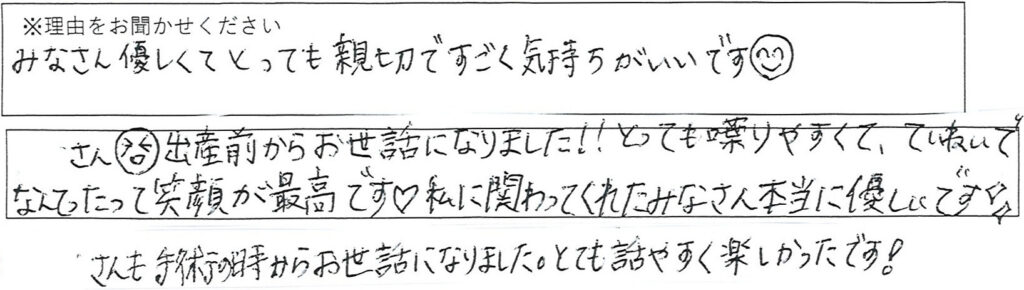 ※理由をお聞かせください
みなさん優しくてとっても親切ですごく気持ちがいいです
さん 出産前からお世話になりました!!とっても喋りやすくて、ていねいで
なんてったって笑顔が最高です♡私に関わってくれたみなさん本当に優しいです
さんも手術の時からお世話になりました。とても話やすく楽しかったです!